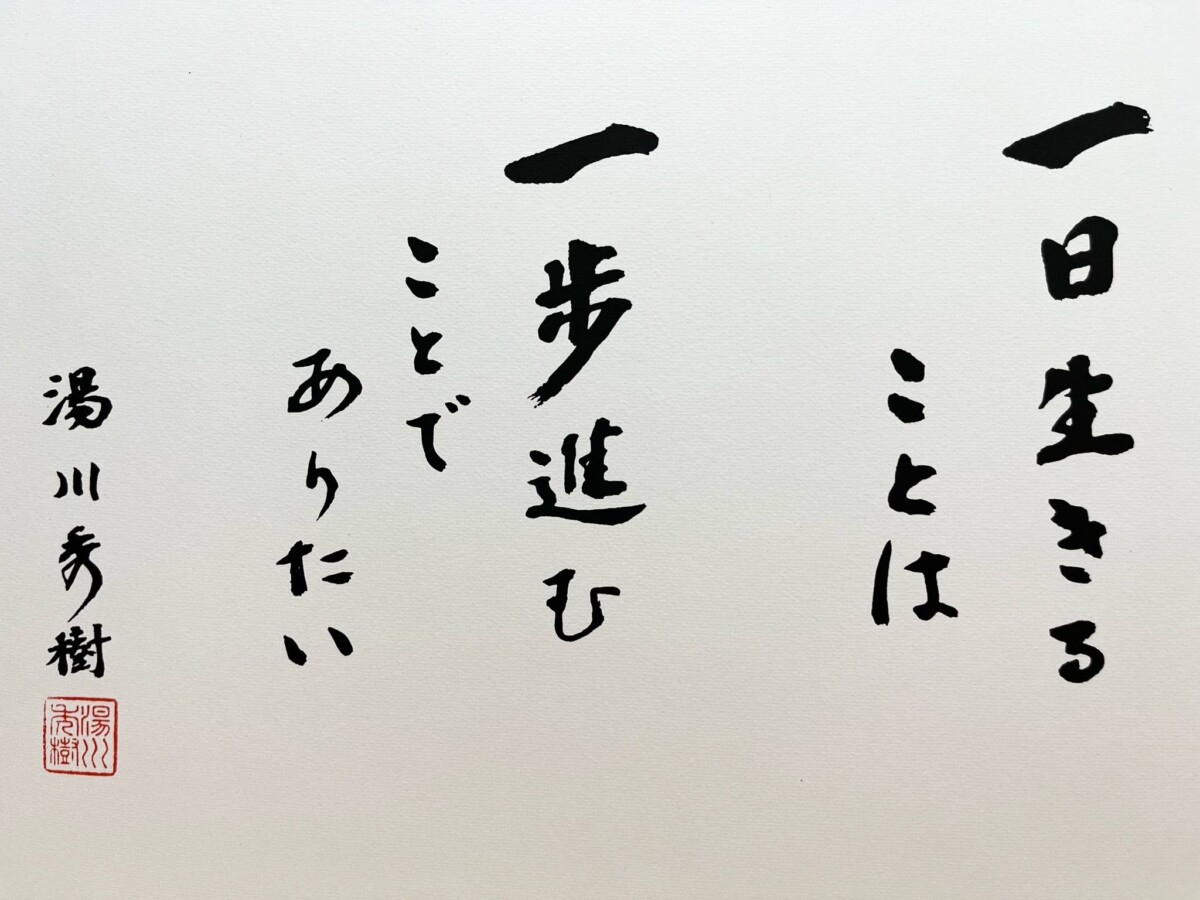 一日生きる
ことは
一歩進む
ことで
ありたい
湯川秀樹
湯川
秀樹